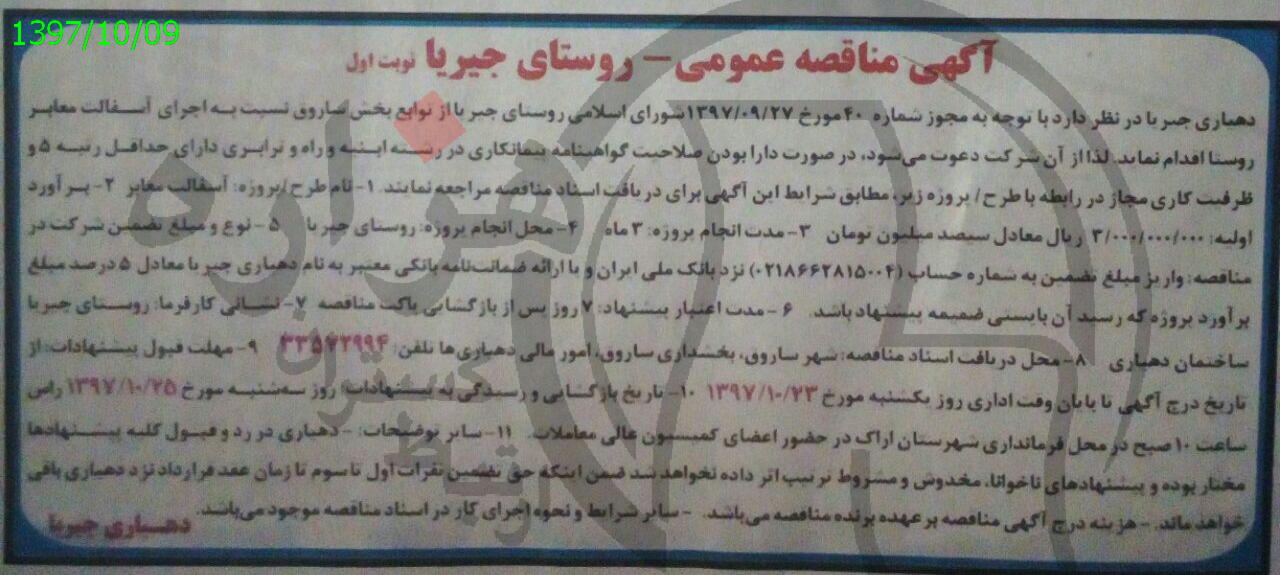 1397/10/09
آگهی مناقصه عمومی - روستای جیریا نوبت اول
دهیاری جیریا در نظر دارد با توجه به مجوز شماره ۴۰ مورخ ۱۳۹۷/۰۹/۲۷ شورای اسلامی روستای جیریا از توابع بخش ساروق نسبت به اجرای آسفالت معابر
روستا اقدام نماید. لذا از آن شرکت دعوت می‌شود، در صورت دارا بودن صلاحیت گواهینامه پیمانکاری در رشته ابنیه و راه و ترابری دارای حداقل رتبه ۵ و
ظرفیت کاری مجاز در رابطه با طرح/ پروژه زیر، مطابق شرایط این آگهی برای دریافت اسناد مناقصه مراجعه نمایند. ۱- نام طرح/پروژه: آسفالت معابر ۲- برآورد
اولیه: ۳/۰۰۰/۰۰۰/۰۰۰ ریال معادل سیصد میلیون تومان ۳- مدت انجام پروژه: ۳ ماه ۴- محل انجام پروژه: روستای جیریا ۵- نوع و مبلغ تضمین شرکت در
مناقصه: واریز مبلغ تضمین به شماره حساب (۰۲۱۸۶۶۲۸۱۵۰۰۴) نزد بانک ملی ایران و یا ارائه ضمانت‌نامه بانکی معتبر به نام دهیاری جیریا معادل ۵ درصد مبلغ
برآورد پروژه که رسید آن بایستی ضمیمه پیشنهاد باشد. ۶- مدت اعتبار پیشنهاد: ۷ روز پس از بازگشایی پاکت مناقصه ۷- نشانی کارفرما: روستای جیریا
ساختمان دهیاری ۸- محل دریافت اسناد مناقصه: شهر ساروق، بخشداری ساروق، امور مالی دهیاری‌ها تلفن: ۳۳۵۷۲۹۹۴ ۹- مهلت قبول پیشنهادات: از
تاریخ درج آگهی تا پایان وقت اداری روز یکشنبه مورخ ۱۳۹۷/۱۰/۲۳ ۱۰- تاریخ بازگشایی و رسیدگی به پیشنهادات: روز سه‌شنبه مورخ ۱۳۹۷/۱۰/۲۵ راس
ساعت ۱۰ صبح در محل فرمانداری شهرستان اراک در حضور اعضای کمیسیون عالی معاملات. ۱۱- سایر توضیحات: - دهیاری در رد و قبول کلیه پیشنهادها
مختار بوده و پیشنهادهای ناخوانا، مخدوش و مشروط ترتیب اثر داده نخواهد شد ضمن اینکه حق تضمین نفرات اول تا سوم تا زمان عقد قرارداد نزد دهیاری باقی
خواهد ماند. - هزینه درج آگهی مناقصه بر عهده برنده مناقصه می‌باشد. - سایر شرایط و نحوه اجرای کار در اسناد مناقصه موجود می‌باشد.
دهیاری جیریا
هزاره